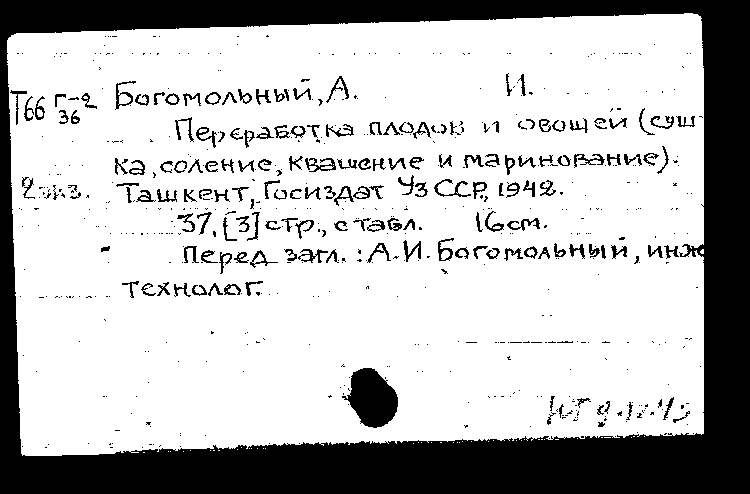 Т66 Г-2 Богомольный, А. И.
36
Переработка плодов и овощей (суш
ка, соление, квашение и маринование).
2 экз. Ташкент, Госиздат УзССР, 1942.
37, [3] стр., с табл. 16 см.
Перед загл.: А.И. Богомольный, инж
технолог.